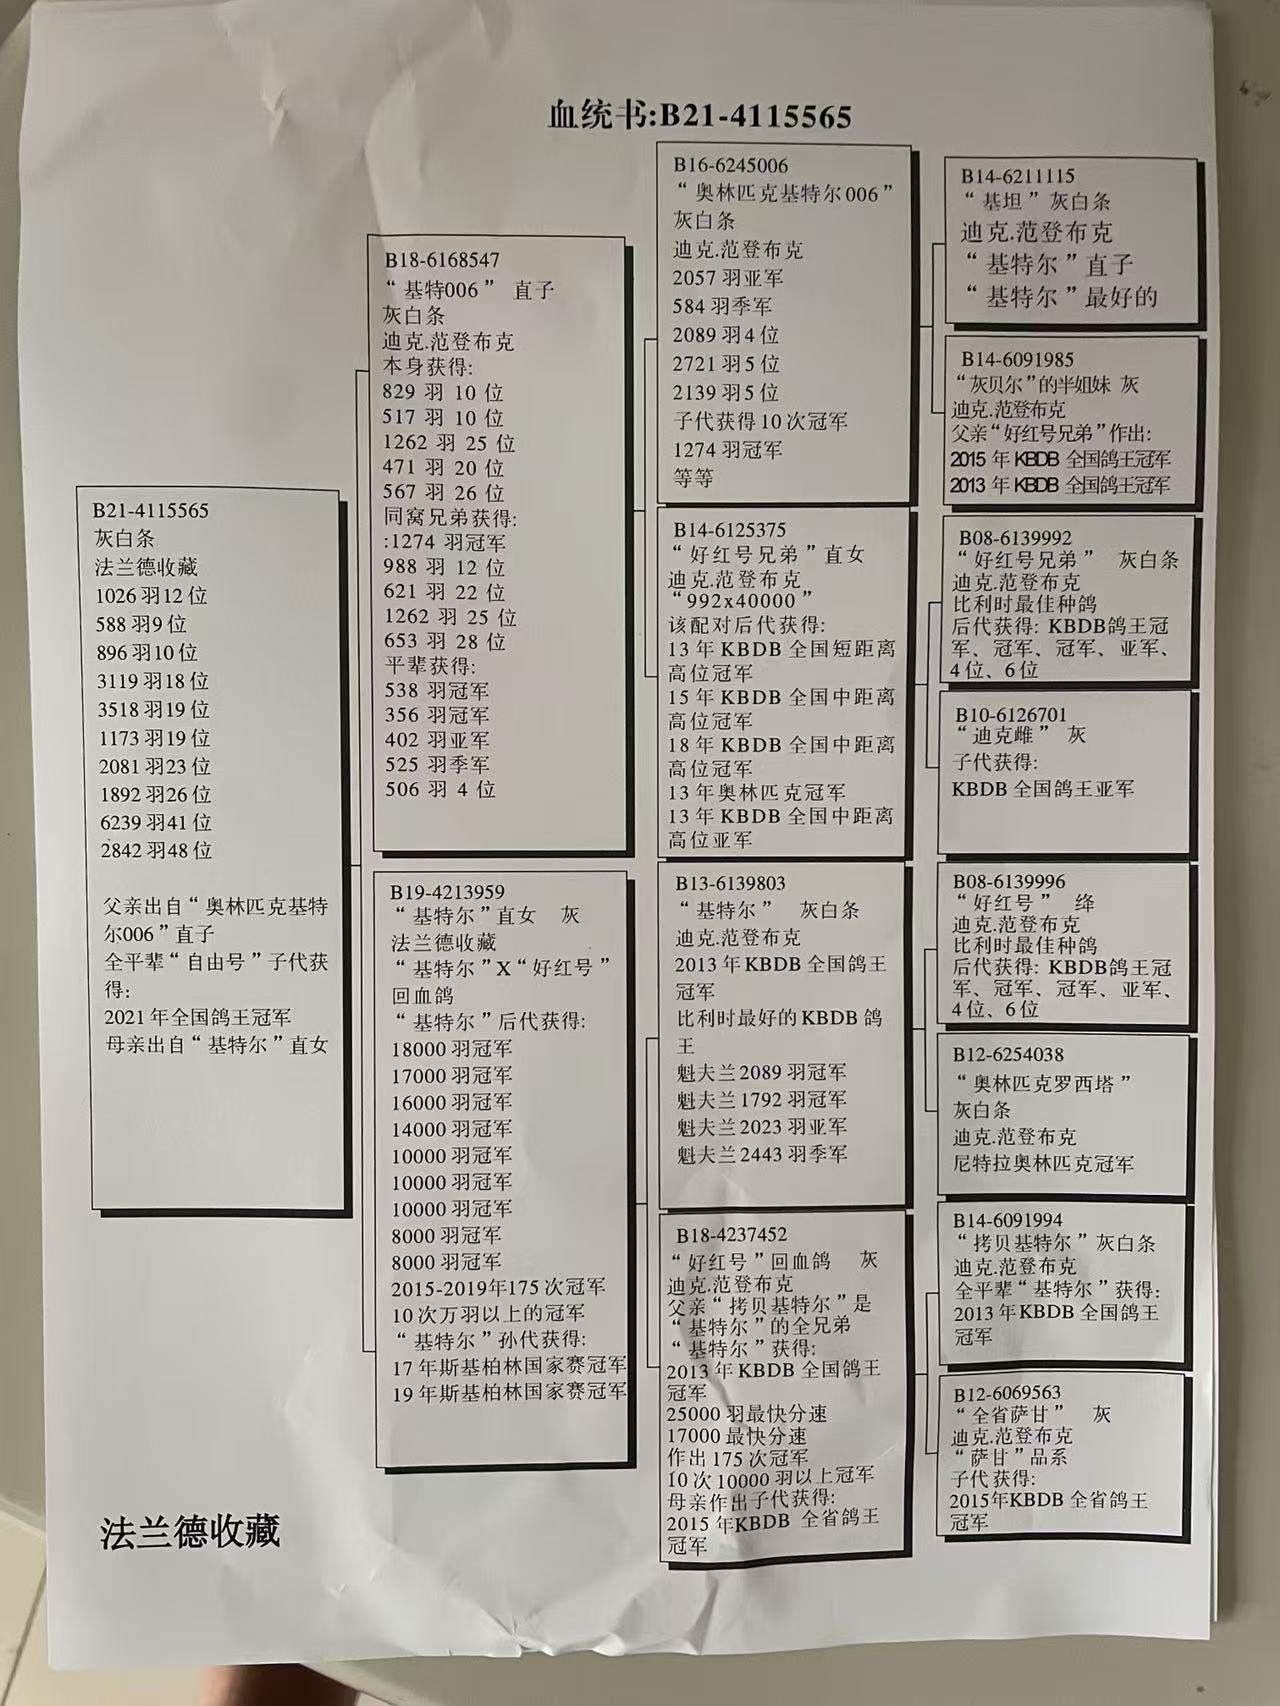 血统书:B21-4115565
B21-4115565
灰白条
法兰德收藏
1026羽12位
588羽9位
896羽10位
3119羽18位
3518羽19位
1173羽19位
2081羽23位
1892羽26位
6239羽41位
2842羽48位
父亲出自“奥林匹克基特
尔006”直子
全平辈“自由号”子代获
得:
2021年全国鸽王冠军
母亲出自“基特尔”直女
B18-6168547
“基特006” 直子
灰白条
迪克.范登布克
本身获得:
829 羽 10 位
517 羽 10 位
1262 羽 25 位
471 羽 20 位
567 羽 26 位
同窝兄弟获得:
:1274 羽冠军
988 羽 12 位
621 羽 22 位
1262 羽 25 位
653 羽 28 位
平辈获得:
538 羽冠军
356 羽冠军
402 羽亚军
525 羽季军
506 羽 4 位
B19-4213959
“基特尔”直女 灰
法兰德收藏
“基特尔”X“好红号”
回血鸽
“基特尔”后代获得:
18000 羽冠军
17000 羽冠军
16000 羽冠军
14000 羽冠军
10000 羽冠军
10000 羽冠军
10000 羽冠军
8000 羽冠军
8000 羽冠军
2015-2019年175 次冠军
10 次万羽以上的冠军
“基特尔”孙代获得:
17 年斯基柏林国家赛冠军
19 年斯基柏林国家赛冠军
B16-6245006
“奥林匹克基特尔006”
灰白条
迪克.范登布克
2057 羽亚军
584 羽季军
2089 羽4 位
2721 羽5 位
2139 羽5 位
子代获得10 次冠军
1274 羽冠军
等等
B14-6125375
“好红号兄弟”直女
迪克.范登布克
“992x40000”
该配对后代获得:
13 年 KBDB 全国短距离
高位冠军
15 年 KBDB 全国中距离
高位冠军
18 年 KBDB 全国中距离
高位冠军
13 年奥林匹克冠军
13 年 KBDB 全国中距离
高位亚军
B13-6139803
“基特尔” 灰白条
迪克.范登布克
2013 年KBDB 全国鸽王
冠军
比利时最好的KBDB 鸽
王
魁夫兰2089 羽冠军
魁夫兰1792 羽冠军
魁夫兰2023 羽亚军
魁夫兰2443 羽季军
B18-4237452
“好红号”回血鸽 灰
迪克.范登布克
父亲“拷贝基特尔”是
“基特尔”的全兄弟
“基特尔”获得:
2013 年KBDB 全国鸽王
冠军
25000 羽最快分速
17000 最快分速
作出175 次冠军
10 次10000 羽以上冠军
母亲作出子代获得:
2015 年KBDB 全省鸽王
冠军
B14-6211115
“基坦”灰白条
迪克.范登布克
“基特尔”直子
“基特尔”最好的
B14-6091985
“灰贝尔”的半姐妹 灰
迪克.范登布克
父亲“好红号兄弟”作出:
2015 年 KBDB 全国鸽王冠军
2013 年 KBDB 全国鸽王冠军
B08-6139992
“好红号兄弟” 灰白条
迪克.范登布克
比利时最佳种鸽
后代获得: KBDB鸽王冠
军、冠军、冠军、亚军、
4 位、6 位
B10-6126701
“迪克雌” 灰
子代获得:
KBDB 全国鸽王亚军
B08-6139996
“好红号” 绛
迪克.范登布克
比利时最佳种鸽
后代获得: KBDB鸽王冠
军、冠军、冠军、亚军、
4 位、6 位
B12-6254038
“奥林匹克罗西塔”
灰白条
迪克.范登布克
尼特拉奥林匹克冠军
B14-6091994
“拷贝基特尔”灰白条
迪克.范登布克
全平辈“基特尔”获得:
2013 年KBDB 全国鸽王
冠军
B12-6069563
“全省萨甘” 灰
迪克.范登布克
“萨甘”品系
子代获得:
2015年KBDB 全省鸽王
冠军
法兰德收藏